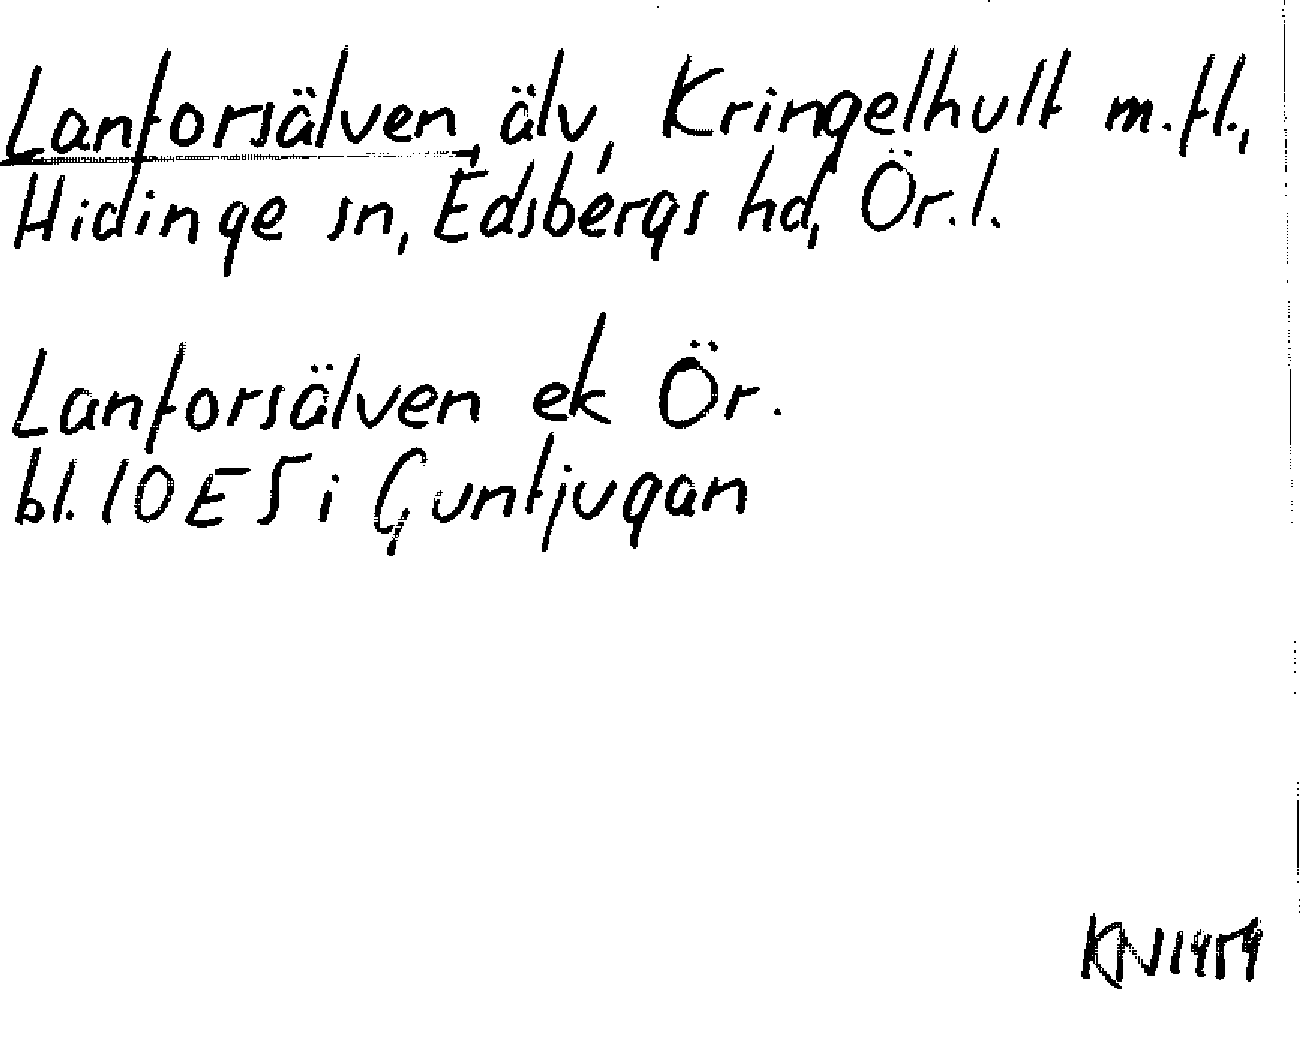 Lanforsälven, älv, Kringelhult m.fl.,
Hidinge sn, Edsbergs hd, Ör.l.
Lanforsälven ek Ör.
bl. 10E5 i Gunfjugan
KN1959